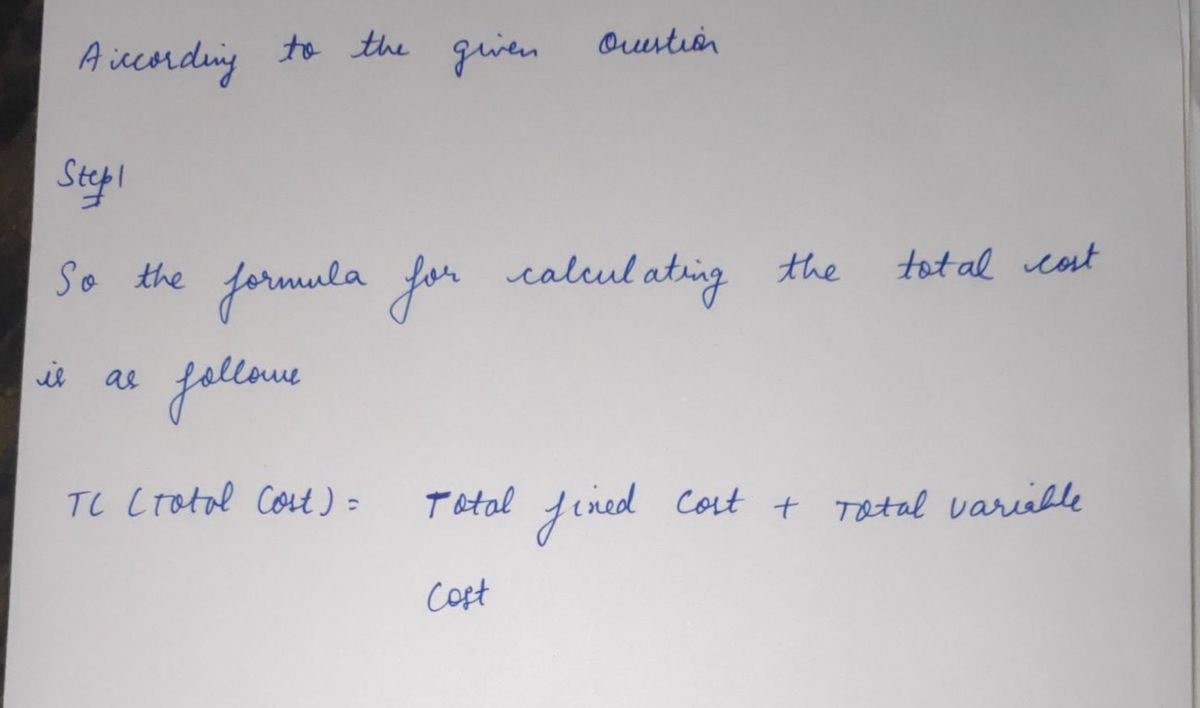 According to the given Question
Step1
So the formula for calculating the total cost
is as follows
TC (Total Cost) = Total fixed Cost + Total variable
Cost